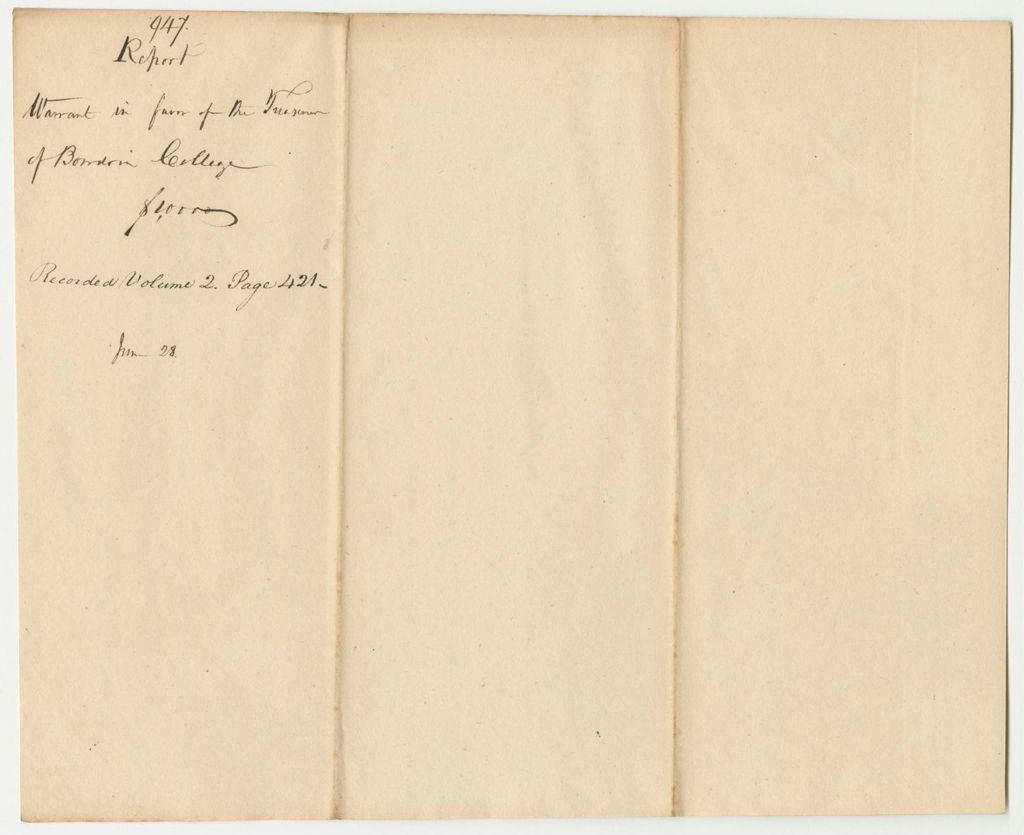 947.
Report
Warrant in favor of the Treasurer
of Bowdoin College
$1,000
Recorded Volume 2. Page 421-
June 28